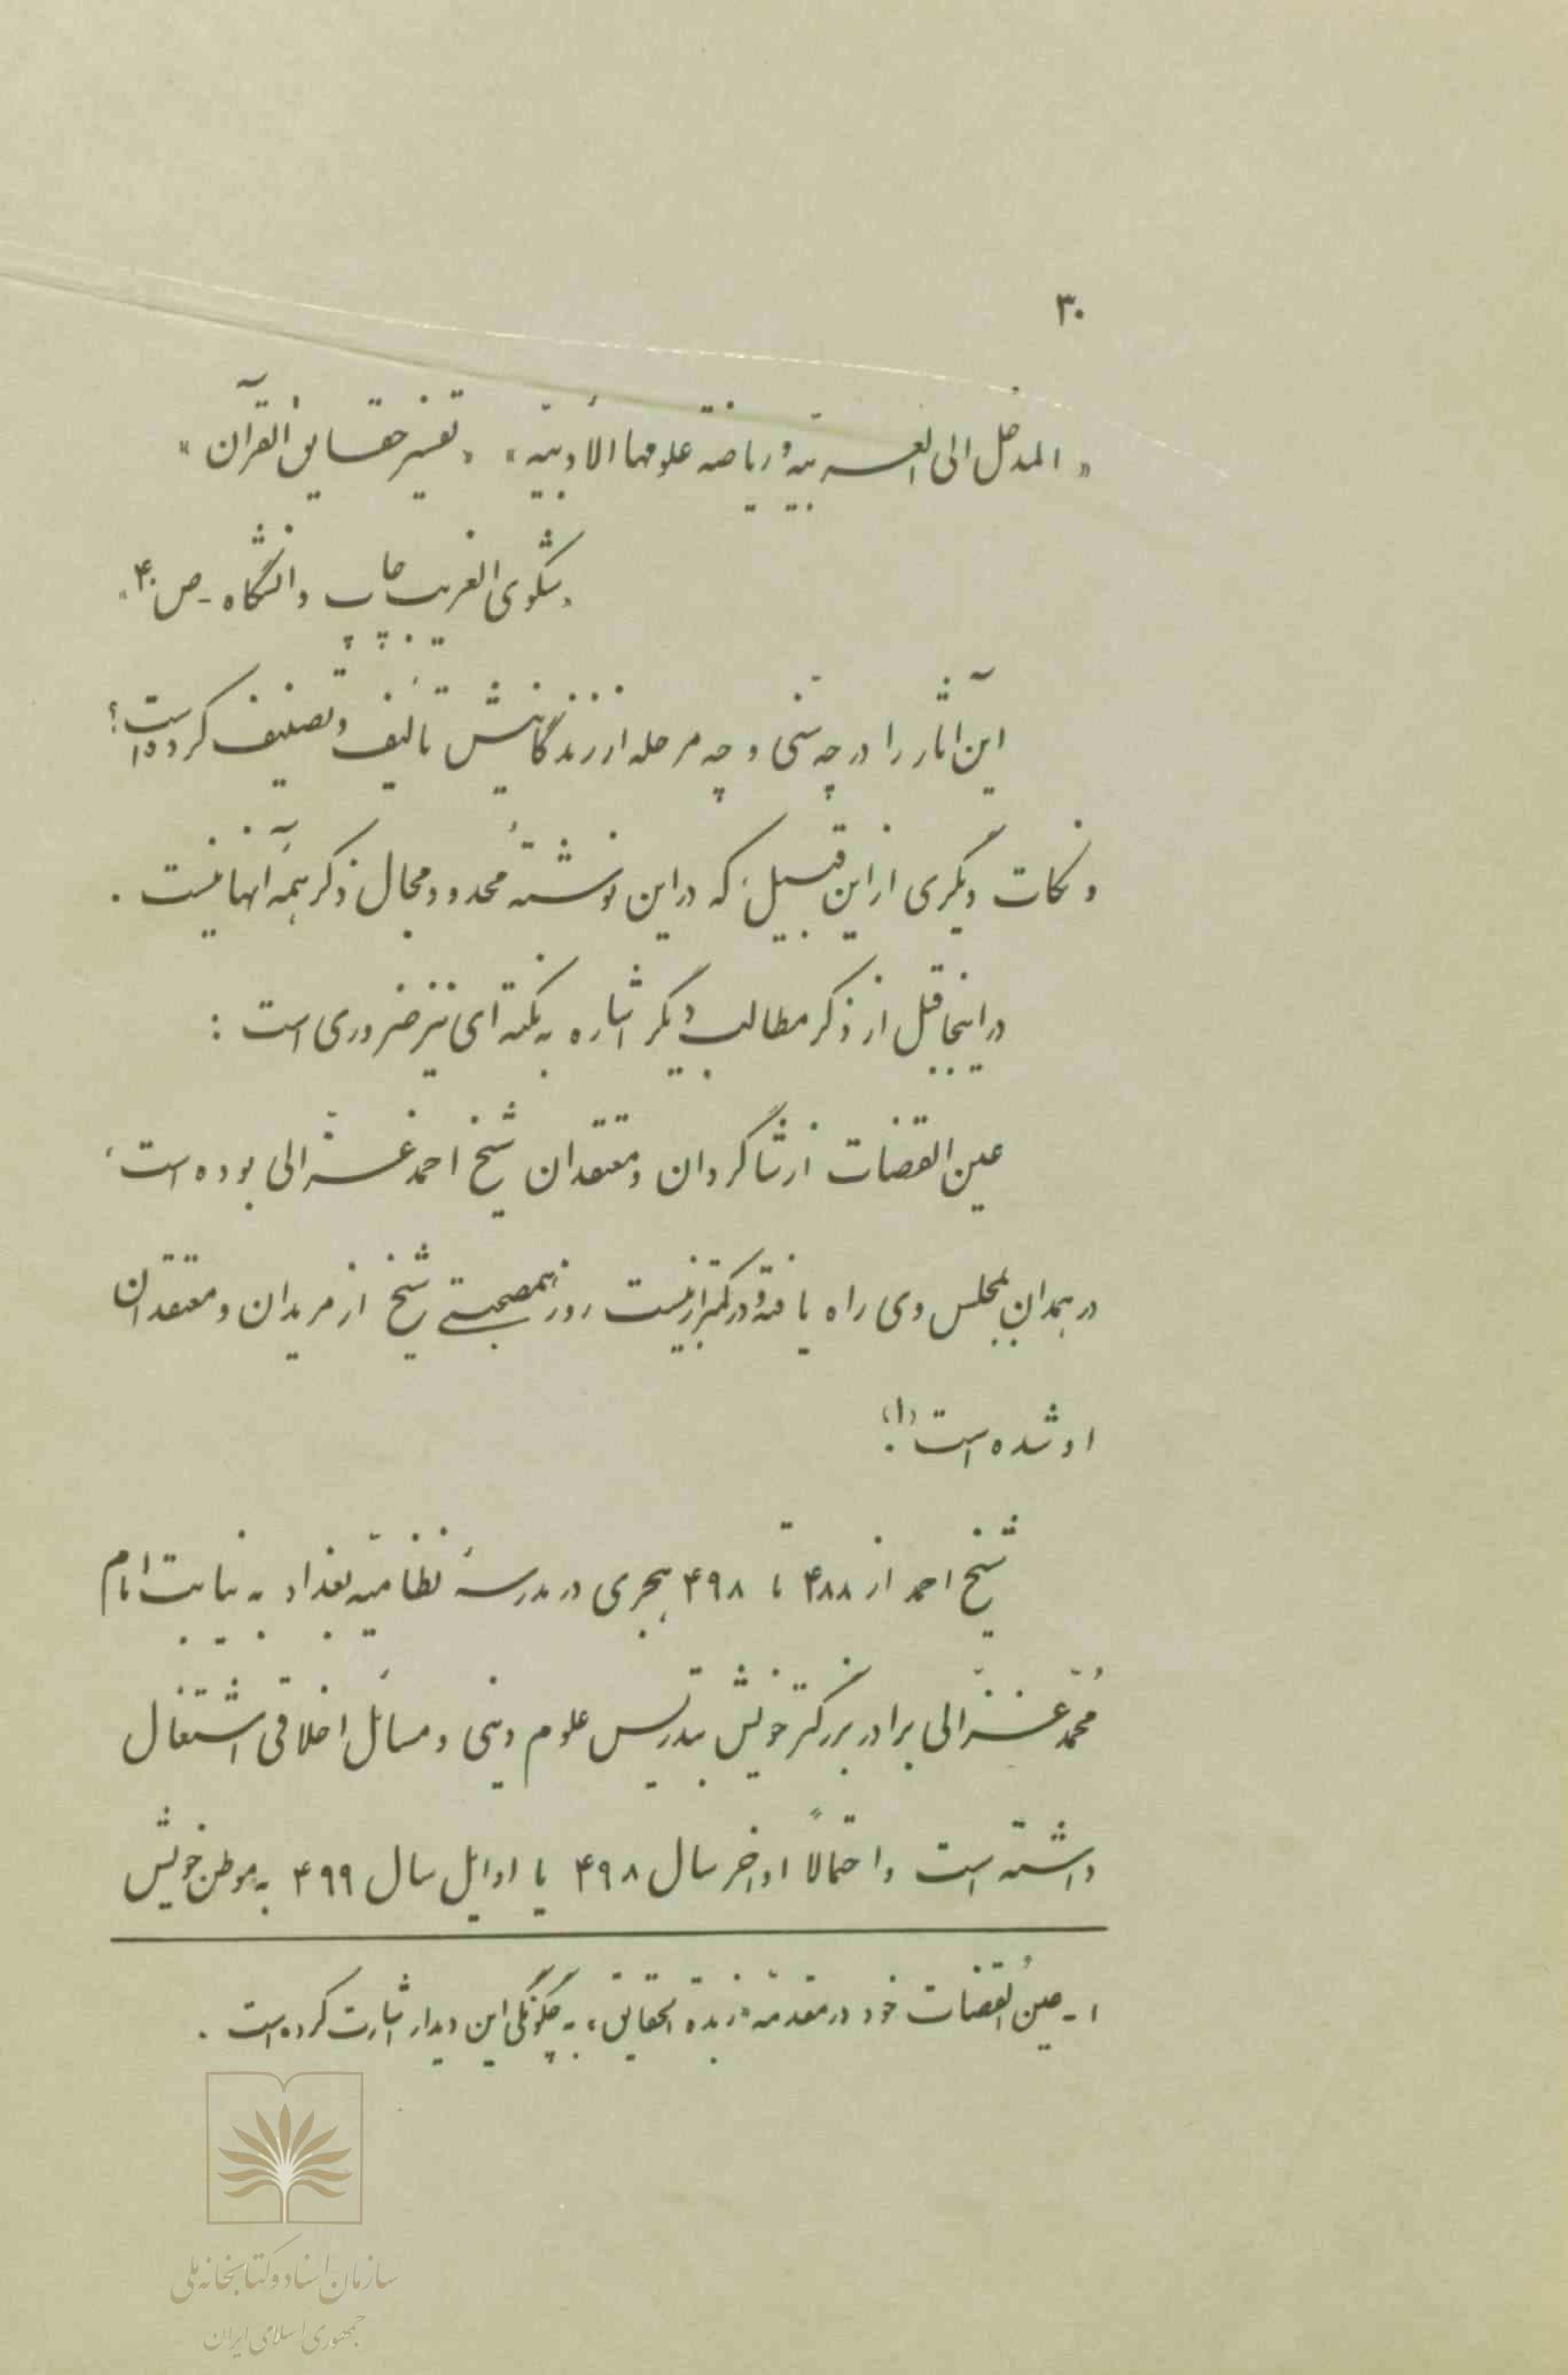 ۳۰
«المدخل الی العربیّة و ریاضة علومها الأدبیّه» «تفسیر حقایق القرآن»
«شکوی الغریب چاپ دانشگاه - ص ۴۰»
این آثار را در چه سنّی و چه مرحله از زندگانیش تألیف و تصنیف کرده است؟
و نکات دیگری از این قبیل که در این نوشتهٔ محدود مجال ذکر همهٔ آنها نیست.
در اینجا قبل از ذکر مطالب دیگر اشاره به نکته‌ای نیز ضروری است:
عین القضات از شاگردان و معتقدان شیخ احمد غزّالی بوده است،
در همدان بمجلس وی راه یافته و در کمتر از بیست روز همصحبتی شیخ از مریدان و معتقدان
او شده است (۱).
شیخ احمد از ۴۸۸ تا ۴۹۸ هجری در مدرسهٔ نظامیّه بغداد به نیابت امام
محمّد غزّالی برادر بزرگتر خویش بتدریس علوم دینی و مسائل اخلاقی اشتغال
داشته است و احتمالاً اواخر سال ۴۹۸ یا اوایل سال ۴۹۹ به موطن خویش
۱- عین القضات خود در مقدّمهٔ «زبدة الحقایق» به چگونگی این دیدار اشارت کرده است.
سازمان اسناد و کتابخانه ملی
جمهوری اسلامی ایران